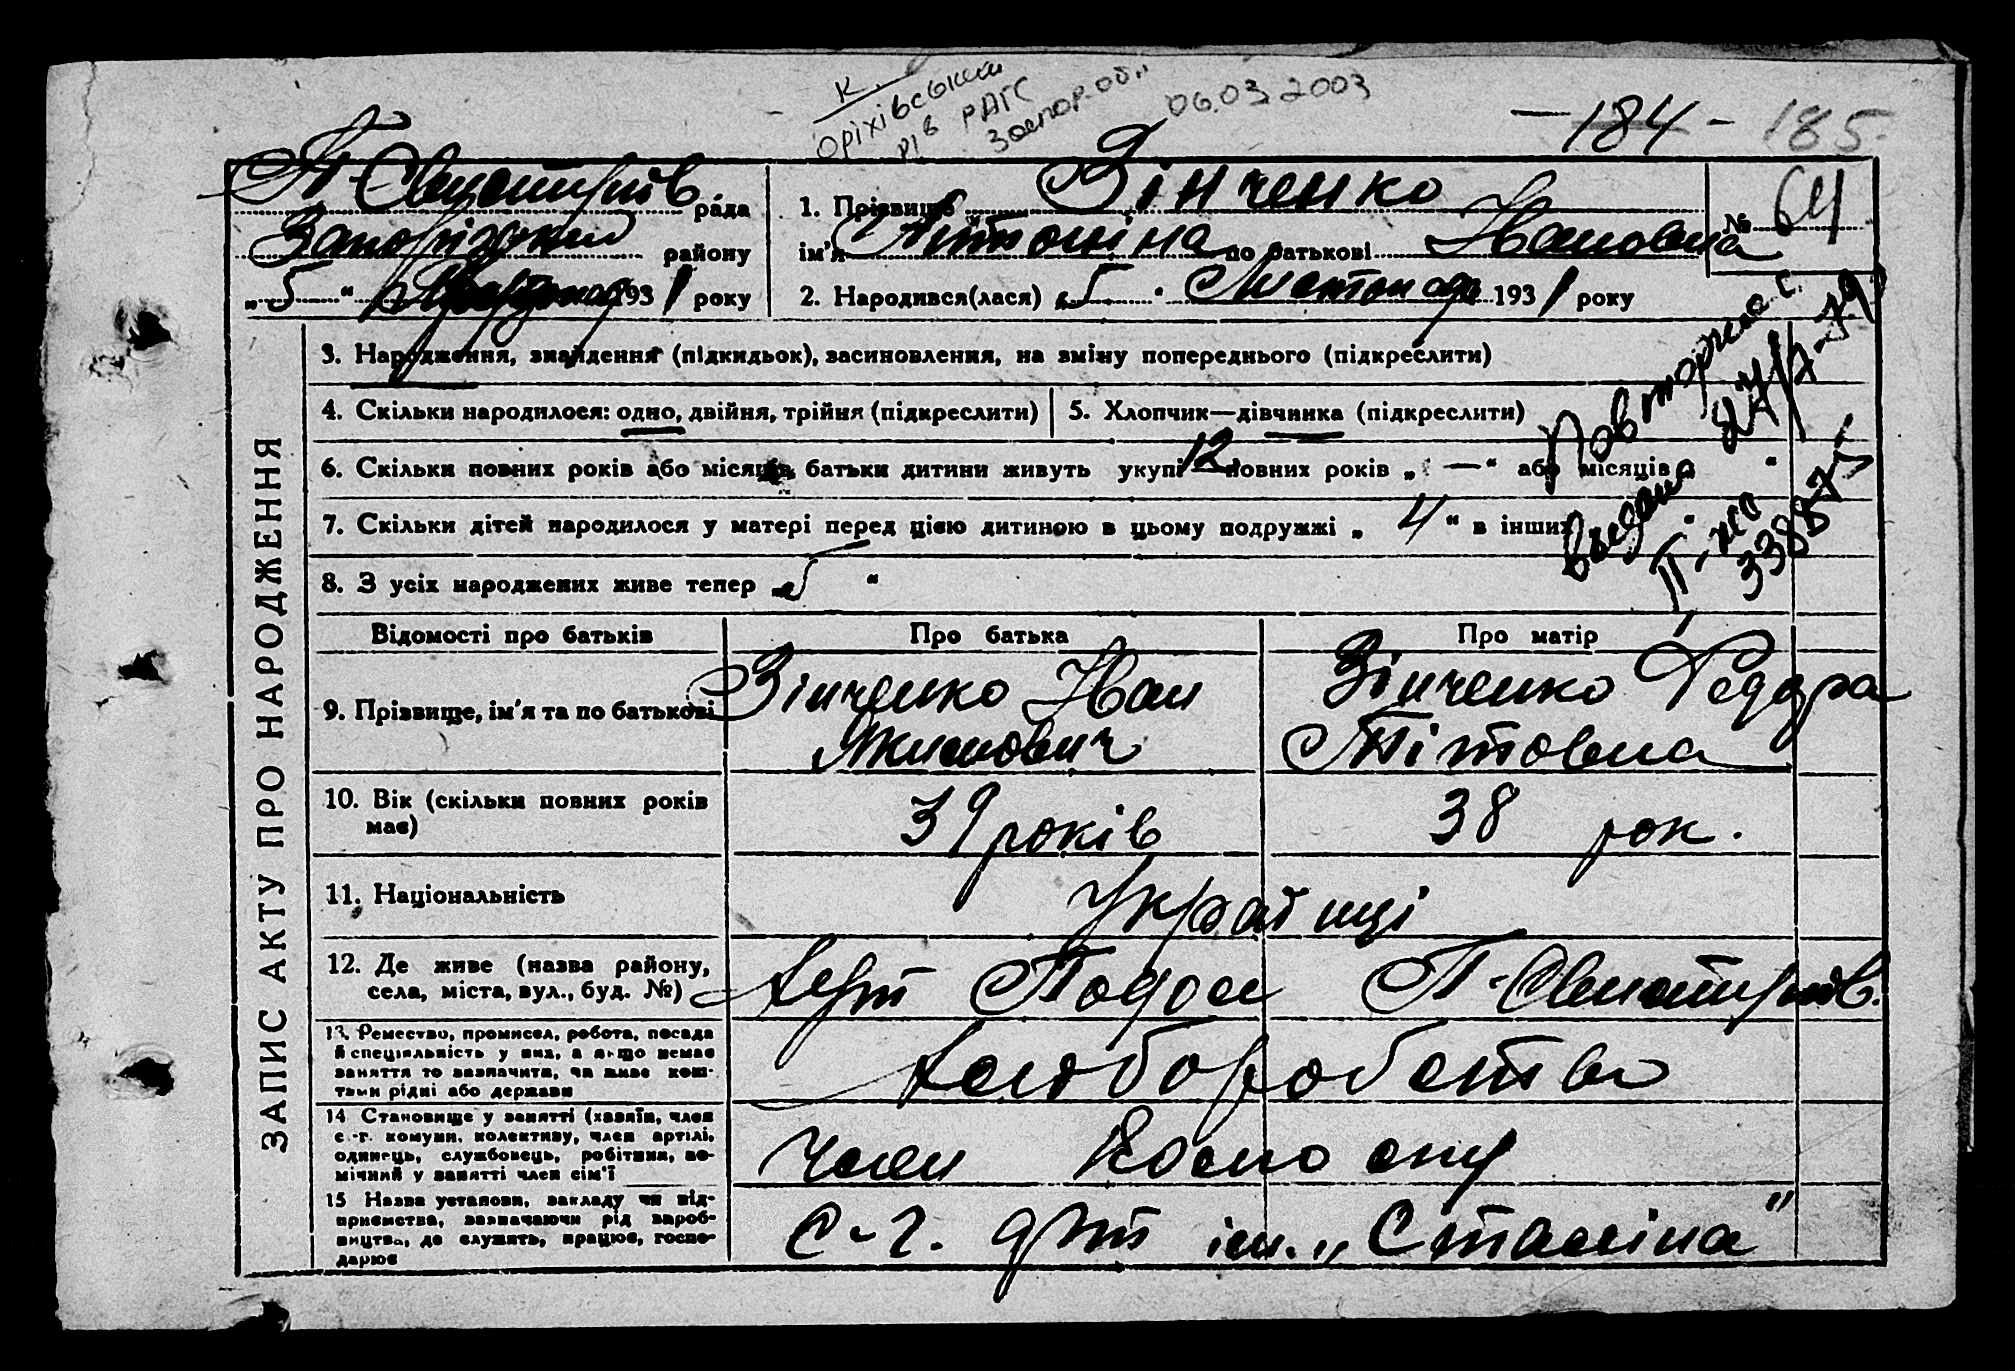 к.
Оріхівський
рів РАГС
Запор. обл.
06.03.2003
184 - 185
рада
району
"5" 1931 року
1. Прізвище Зінченко
ім'я Антоніна по батькові Івановна
№ 64
2. Народився(лася) "5" Листопада 1931 року
ЗАПИС АКТУ ПРО НАРОДЖЕННЯ
3. Народження, знайдення (підкидьок), засиновлення, на зміну попереднього (підкреслити)
4. Скільки народилося: одно, двійня, трійня (підкреслити)
5. Хлопчик—дівчинка (підкреслити)
6. Скільки повних років або місяців батьки дитини живуть укупі 12 повних років „ — “ або місяців „ “
7. Скільки дітей народилося у матері перед цією дитиною в цьому подружжі „ 4 “ в інших
8. З усіх народжених живе тепер „ 5 “
Повторное с.
Выдано
II-жо
338875
Відомості про батьків
Про батька
Про матір
9. Прізвище, ім'я та по батькові
Зінченко Иван
Якимович
Зінченко Федора
Тітовна
10. Вік (скільки повних років
має)
39 років
38 рок.
11. Національність
Українці
12. Де живе (назва району,
села, міста, вул., буд. №)
13. Ремество, промисел, робота, посада
й спеціяльність у них, а якщо немає
заняття то зазначити, чи живе кош-
тами рідні або держави
Хліборобство
14 Становище у занятті (хазяїн, член
с.-г. комуни, колективу, член артілі,
одинець, службовець, робітник, по-
мічний у занятті член сім'ї
член
15 Назва установи, закладу чи під-
приємства, зазначаючи рід вироб-
ництва, де служить, працює, госпо-
дарює
С-г. арт ім. „Сталіна"